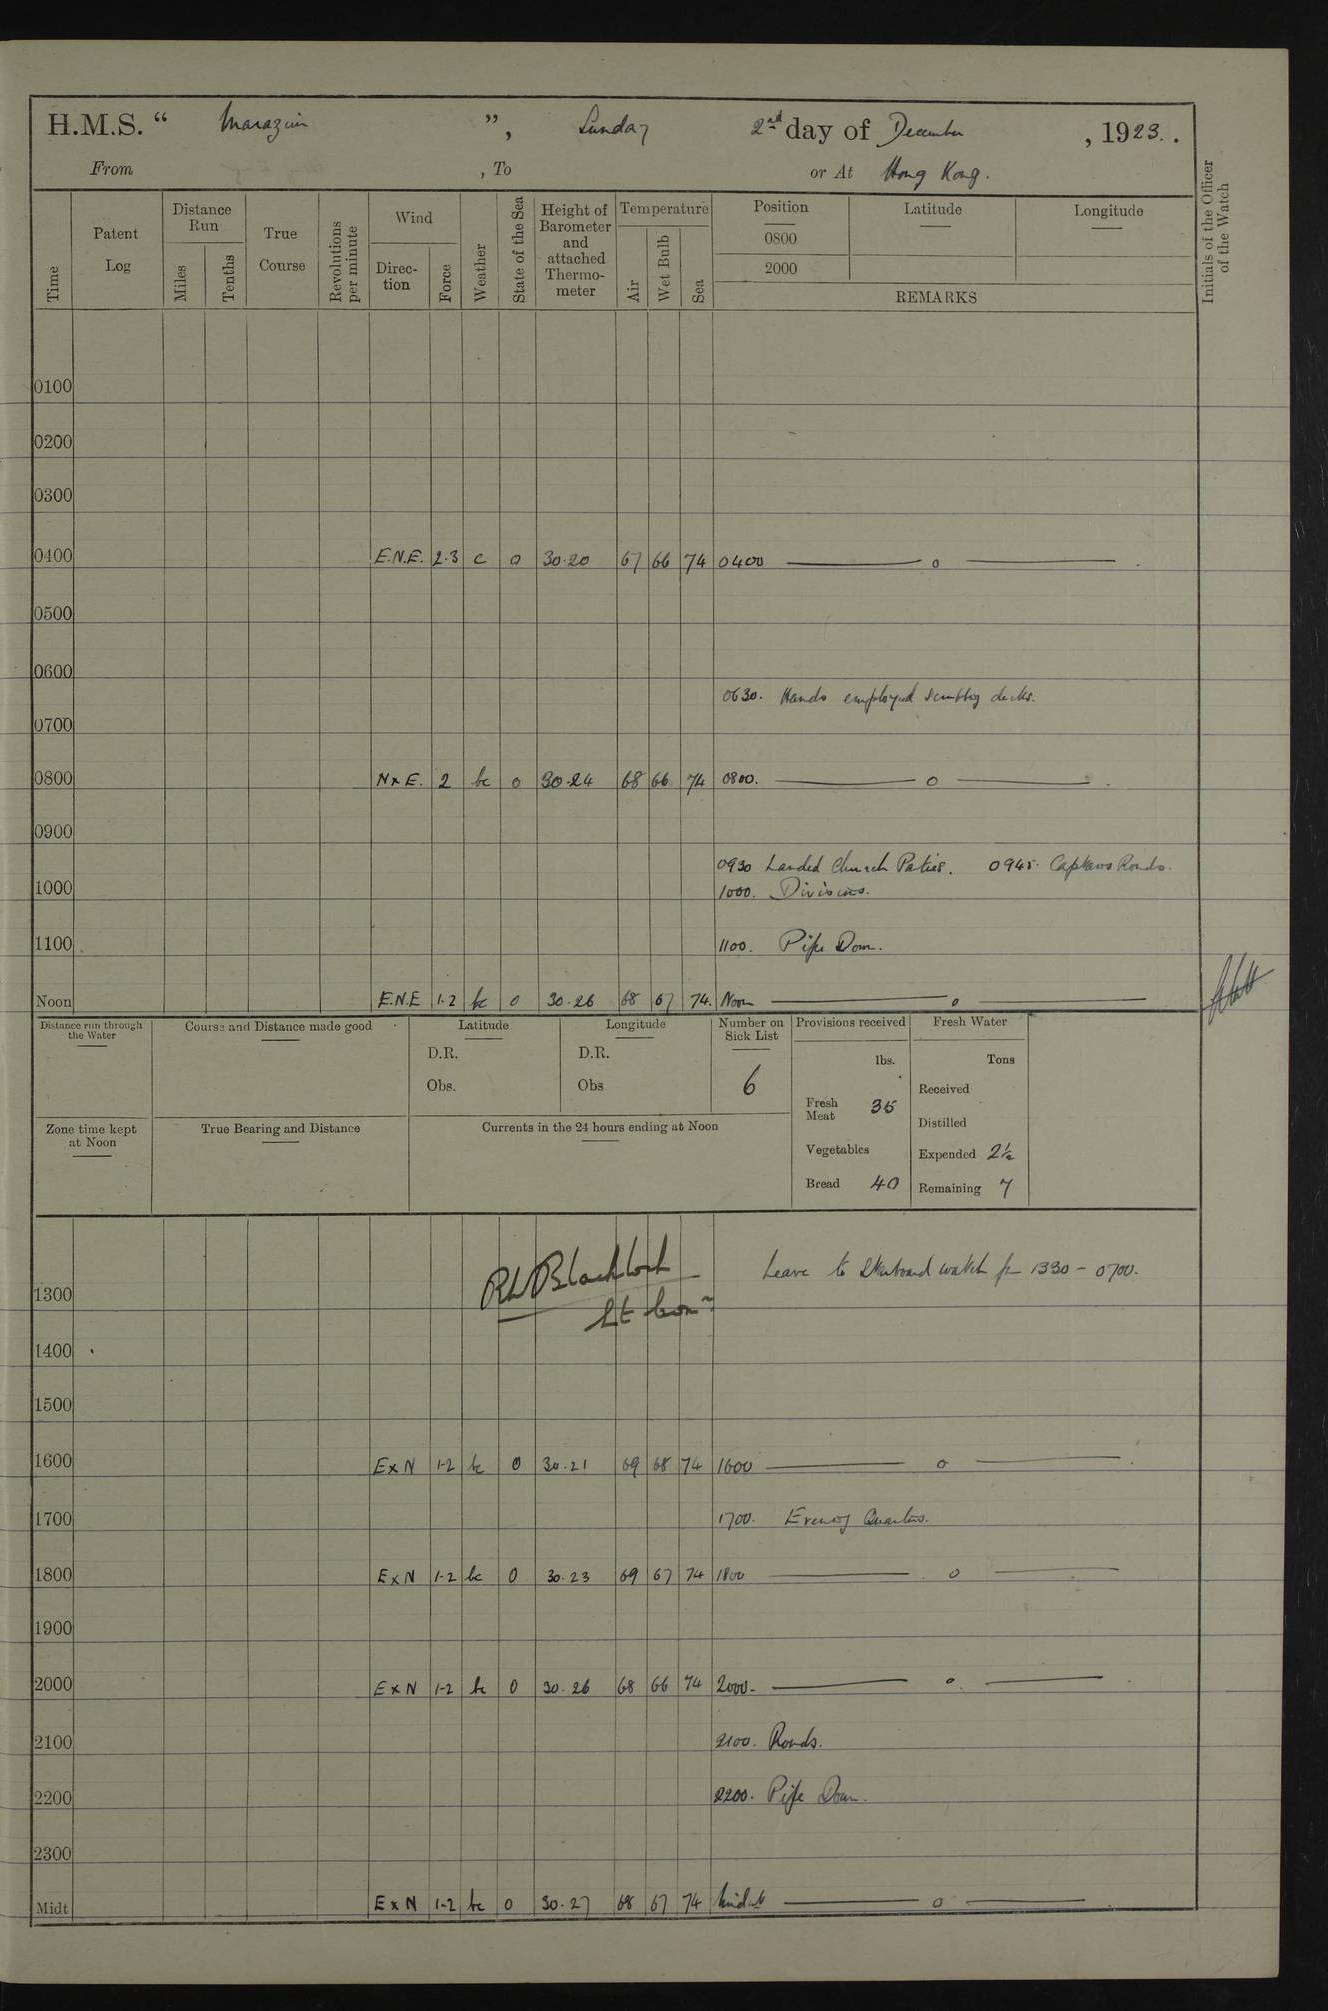 H.M.S. “ Marazion ”, Sunday 2nd day of December, 1923.
From , To or At Hong Kong.
Time
Patent Log
Distance Run
Miles
Tenths
True Course
Revolutions per minute
Wind
Direc-tion
Force
Weather
State of the Sea
Height of Barometer and attached Thermo-meter
Temperature
Air
Wet Bulb
Sea
Position
0800
2000
Latitude
Longitude
REMARKS
Initials of the Officer of the Watch
0100
0200
0300
0400 E.N.E. 2-3 c 0 30.20 67 66 74 0400 — o —
0500
0600
0630. Hands employed scrubbing decks.
0700
0800 NxE. 2 bc 0 30.24 68 66 74 0800. — o —
0900
0930 Landed Church Parties. 0945. Captains Rounds.
1000 1000. Divisions.
1100 1100. Pipe Down.
Noon E.N.E 1-2 bc 0 30.26 68 67 74. Noon — o —
Distance run through the Water
Course and Distance made good
Latitude
D.R.
Obs.
Longitude
D.R.
Obs
Number on Sick List
6
Provisions received
lbs.
Fresh Meat 35
Vegetables
Bread 40
Fresh Water
Tons
Received
Distilled
Expended 2½
Remaining 7
Zone time kept at Noon
True Bearing and Distance
Currents in the 24 hours ending at Noon
Leave to Starboard watch fr 1330 - 0700.
Lt Comr
1300
1400
1500
1600 ExN 1-2 bc 0 30.21 69 68 74 1600 — o —
1700 1700. Evening Quarters.
1800 ExN 1-2 bc 0 30.23 69 67 74 1800 — o —
1900
2000 ExN 1-2 bc 0 30.26 68 66 74 2000. — o —
2100 2100. Rounds.
2200 2200. Pipe Down.
2300
Midt ExN 1-2 bc 0 30.27 68 67 74 Midt — o —